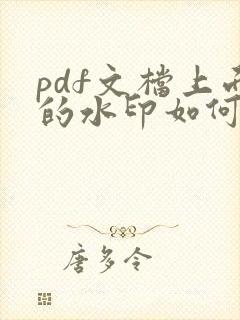 pdf文檔上
的水印如何
唐多令